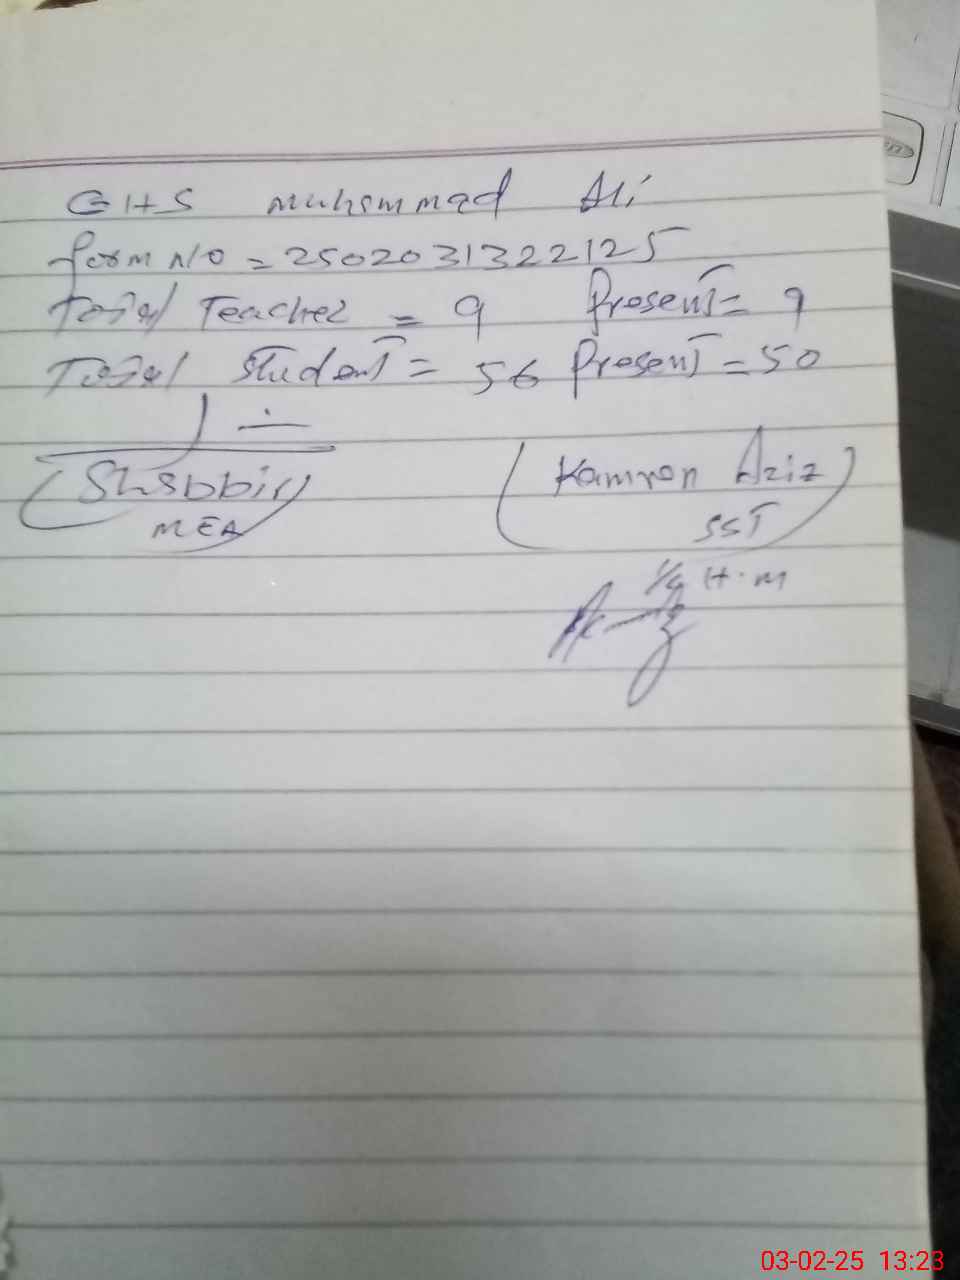 GHS Muhammad Ali
form No = 2502031322125
Total Teacher = 9 Present = 9
Total Student = 56 Present = 50
(Shabbir)
MEA
(Kamran Aziz)
SST
H.M
03-02-25 13:23